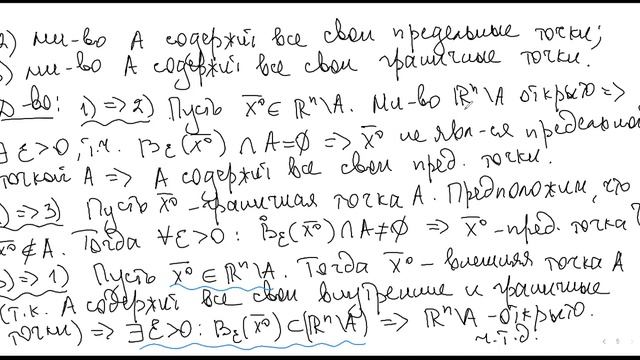 2) мн-во A содержит все свои предельные точки;
) мн-во A содержит все свои граничные точки.
Д-во: 1) => 2) Пусть x̄⁰ ∈ ℝⁿ\A. Мн-во ℝⁿ\A открыто =>
∃ ε>0, т.ч. B_ε(x̄⁰) ∩ A = ∅ => x̄⁰ не явл-ся предельной
точкой A => A содержит все свои пред. точки.
) => 3) Пусть x̄⁰ - граничная точка A. Предположим, что
x̄⁰ ∉ A. Тогда ∀ε>0 : B̊_ε(x̄⁰) ∩ A ≠ ∅ => x̄⁰ - пред. точка
) => 1) Пусть x̄⁰ ∈ ℝⁿ\A. Тогда x̄⁰ - внешняя точка A
(т.к. A содержит все свои внутренние и граничные
точки) => ∃ ε>0 : B_ε(x̄⁰) ⊂ (ℝⁿ\A) => ℝⁿ\A - открыто.
ч.т.д.